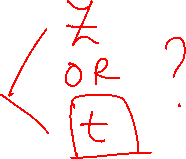 Z
OR
t
?